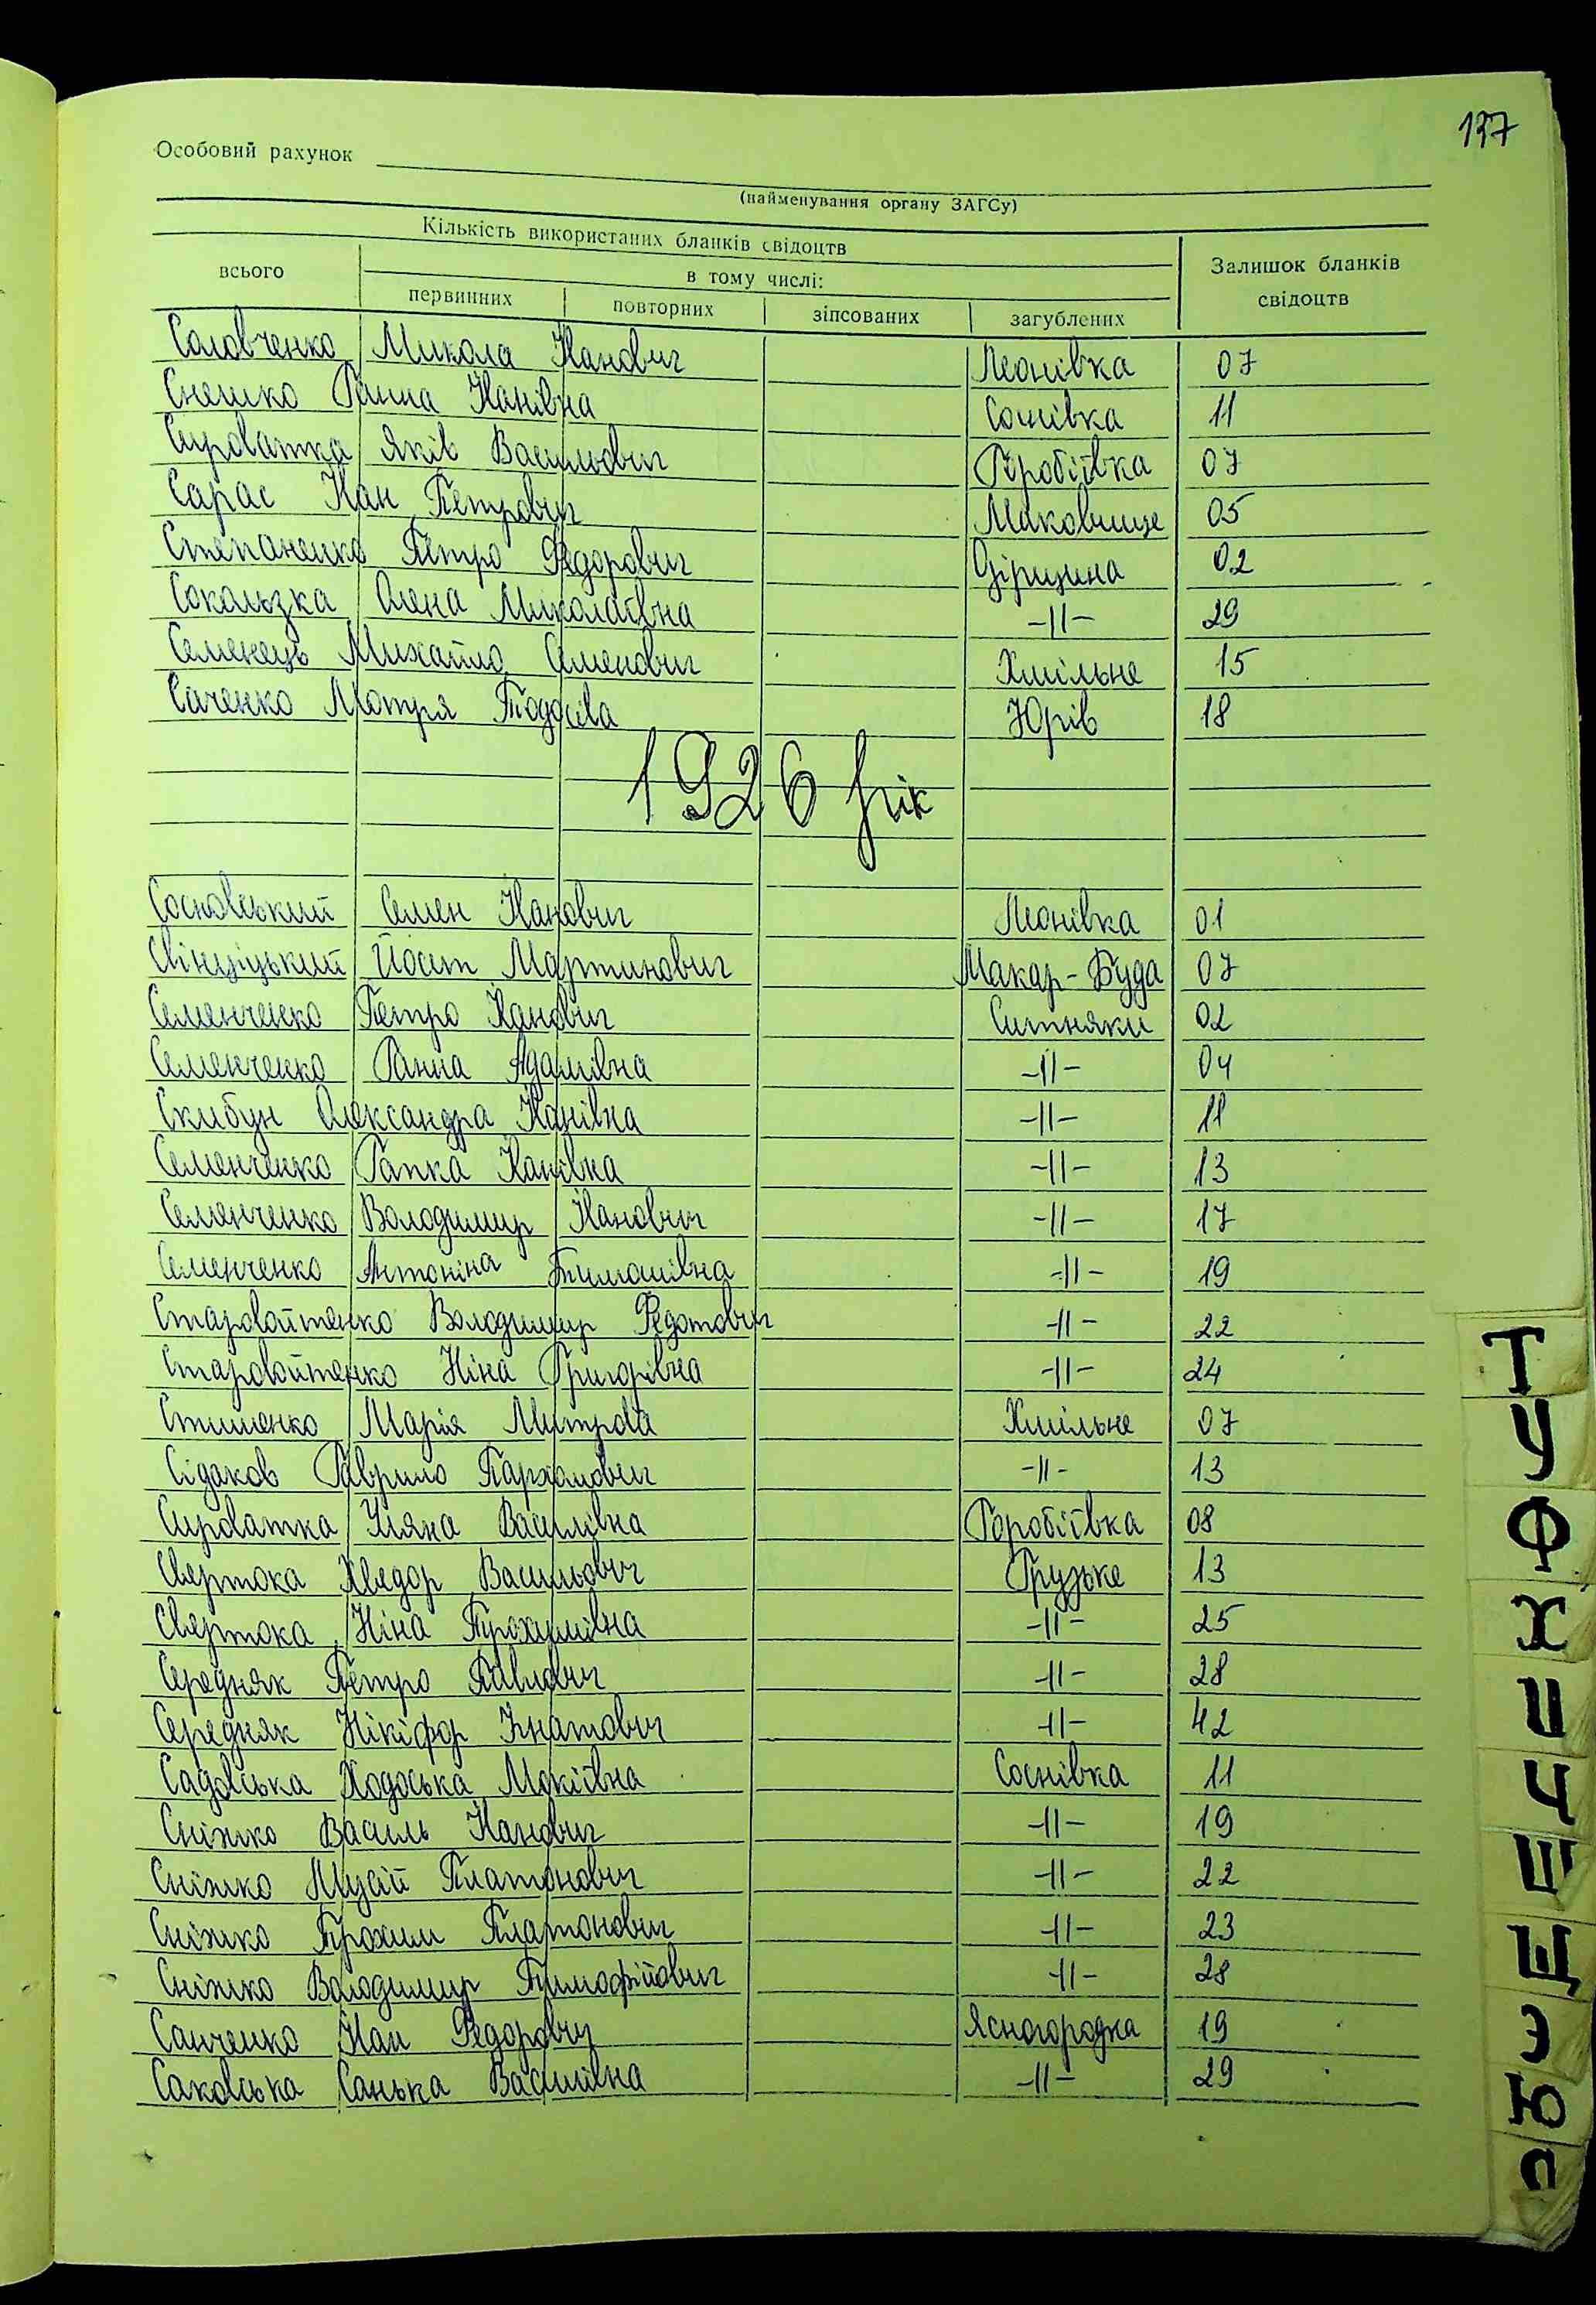 137
Особовий рахунок
(найменування органу ЗАГСу)
Кількість використаних бланків свідоцтв
Залишок бланків свідоцтв
всього
в тому числі:
первинних повторних зіпсованих загублених
Соловченко Микола Іванович Леонівка 07
Снешко Ганна Іванівна Соснівка 11
Сироватка Яків Васильович Горобіївка 07
Сарас Іван Петрович Маковище 05
Степаненко Петро Федорович Зірщина 02
Сокальзка Олена Миколаївна -11- 29
Семенець Михайло Семенович Хмільне 15
Саченко Мотря Тодосіва Юрів 18
1926 рік
Сосновський Семен Іванович Леонівка 01
Йосип Мартинович Макар-Буда 07
Семенченко Петро Іванович Ситняки 02
Семенченко Ганна Адамівна -11- 04
Скибун Олександра Іванівна -11- 11
Семенченко Гапка Іванівна -11- 13
Семенченко Володимир Іванович -11- 17
Семенченко Антоніна Тимошівна -11- 19
Старовойтенко Володимир Федотович -11- 22
Старовойтенко Ніна Григорівна -11- 24
Марія Митрова Хмільне 07
Сідаков Гаврило Пархомович -11- 13
Сироватка Уляна Василівна Горобіївка 08
Свертока Хведор Васильович Грузьке 13
Свертока Ніна Прохимівна -11- 25
Середняк Петро Павлович -11- 28
Середняк Нікіфор Ігнатович -11- 42
Садовська Ходоська Мокіївна Соснівка 11
Сніжко Василь Іванович -11- 19
Сніжко Мусій Платонович -11- 22
Сніжко Прохим Платонович -11- 23
Сніжко Володимир Тимофійович -11- 28
Санченко Іван Федорович Ясногородка 19
Саковська Санька Василівна -11- 29
Т
У
Ф
Х
Ц
Ч
Ш
Щ
Э
Ю